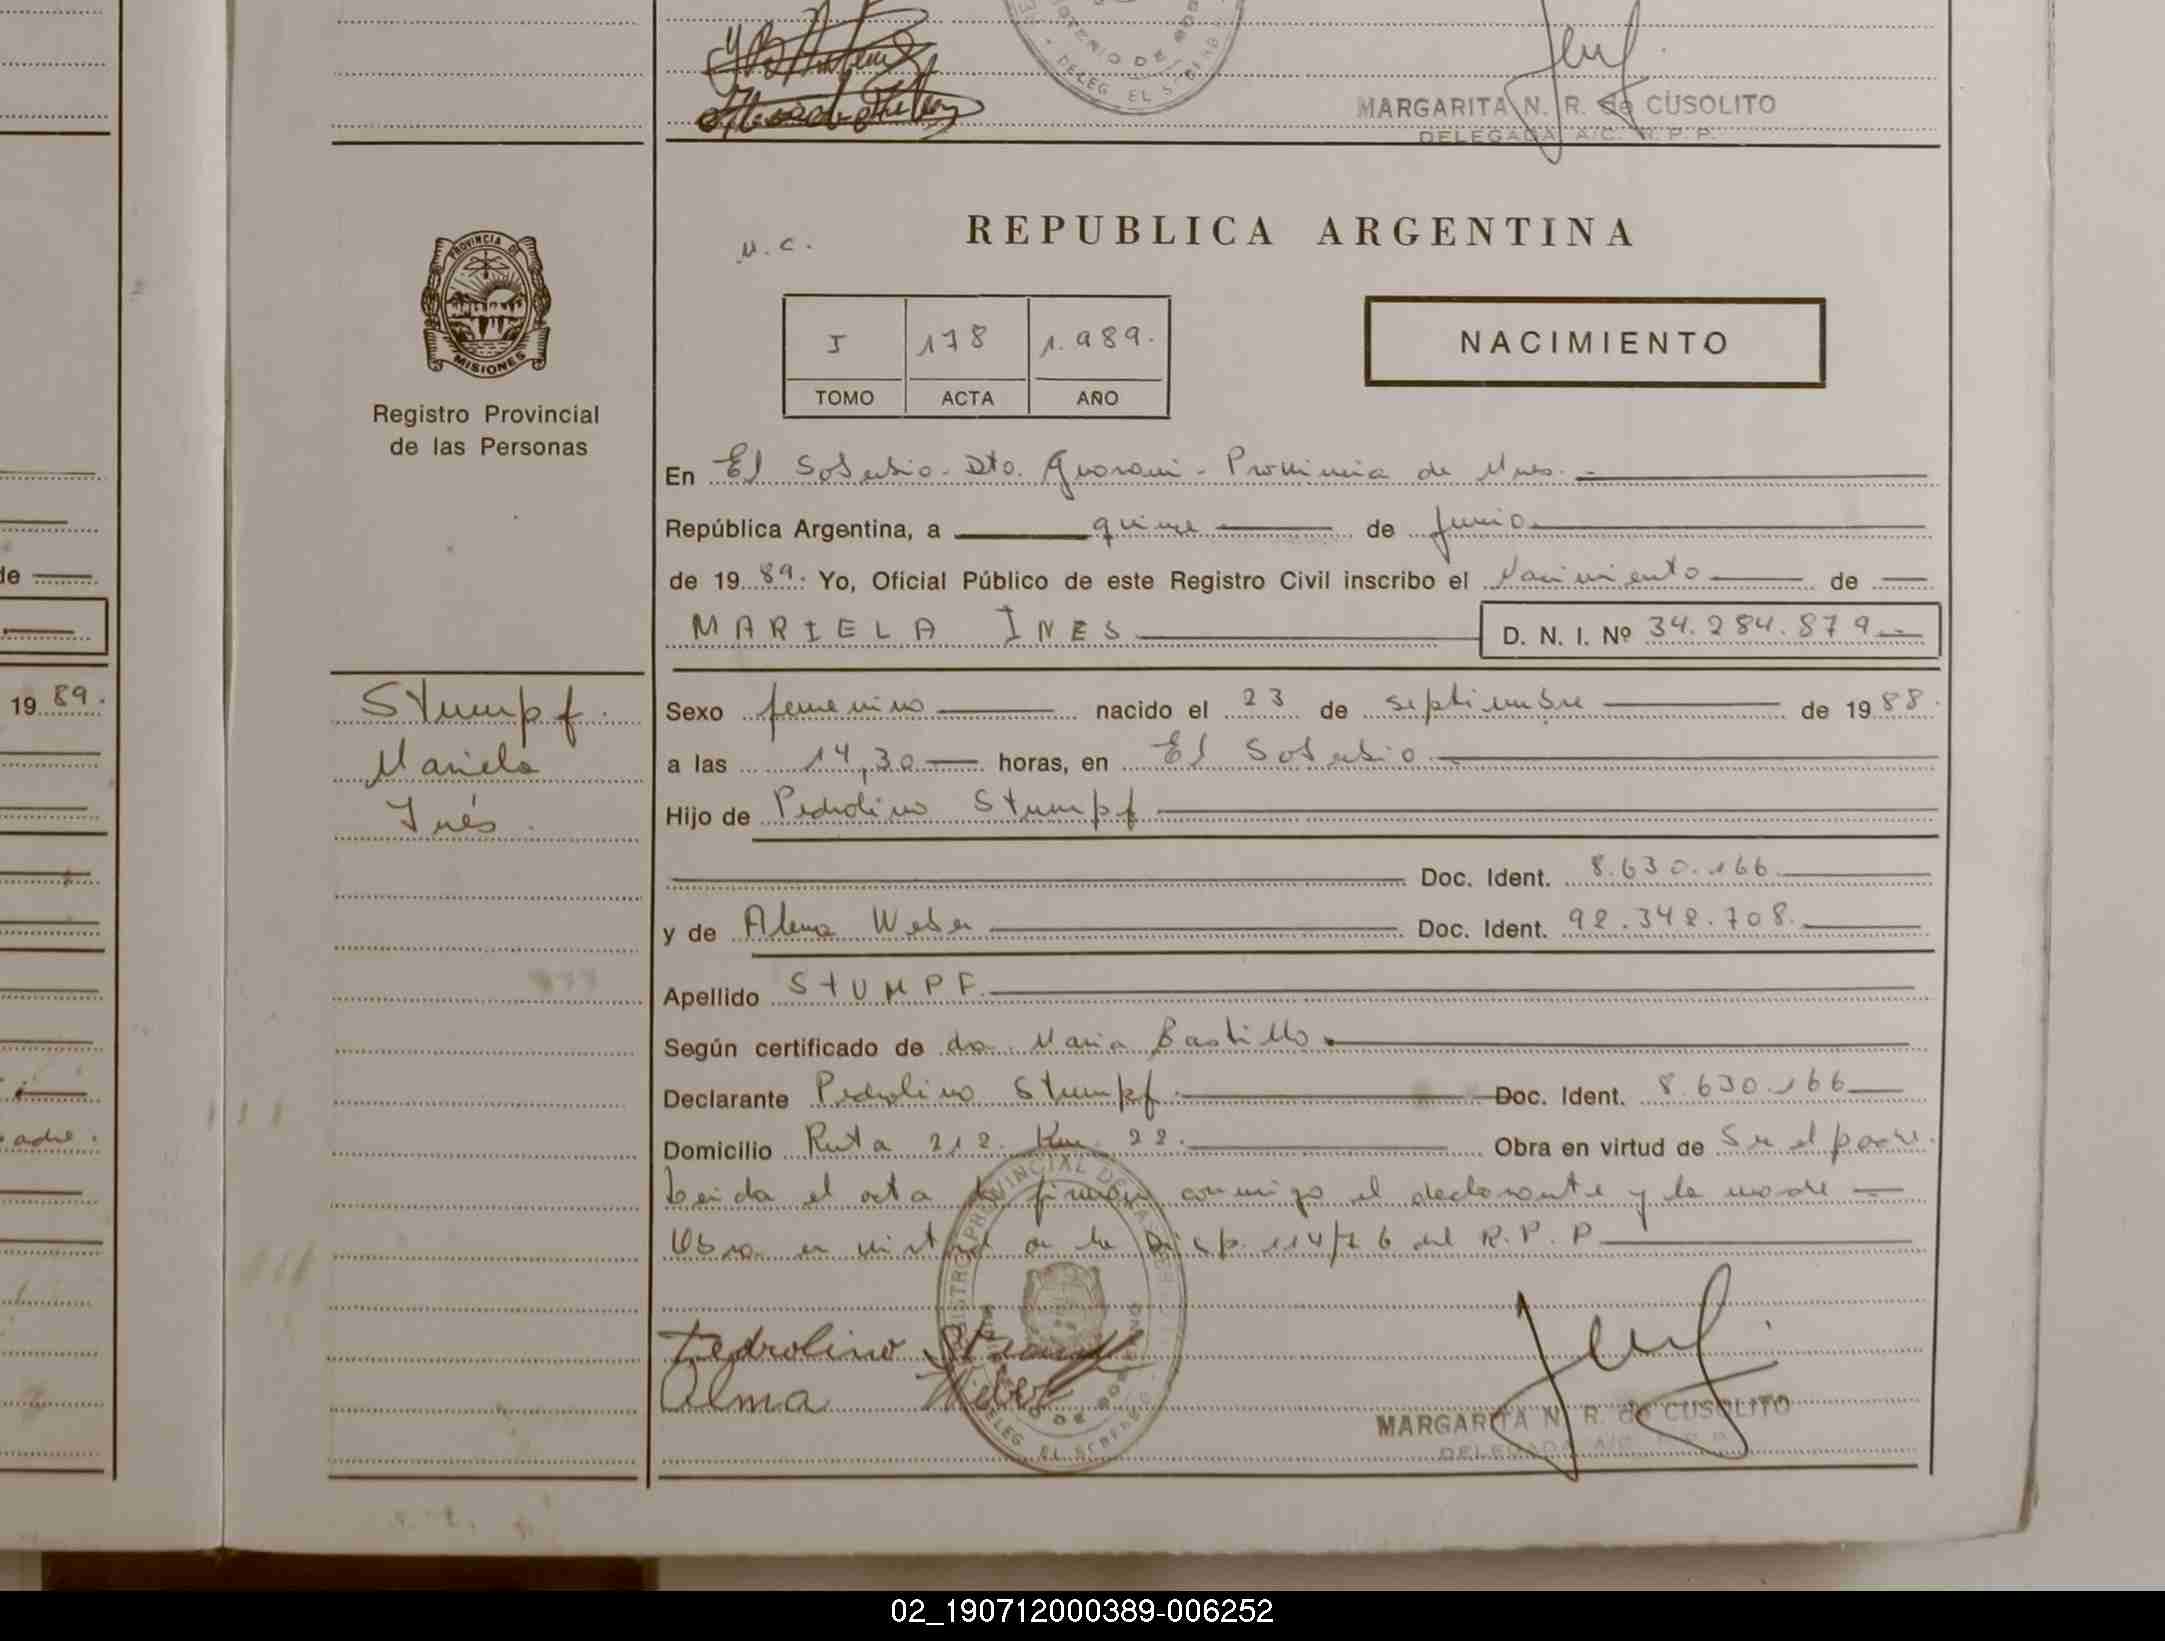 MARGARITA N. R. de CUSOLITO
DELEGADA A/C. R. P. P.
PROVINCIA DE
MISIONES
Registro Provincial
de las Personas
REPUBLICA ARGENTINA
I 178 1.989.
TOMO ACTA AÑO
NACIMIENTO
En El Soberbio - Dto. Guarani - Provincia de Mnes.
República Argentina, a quince de Junio
de 19 89. Yo, Oficial Público de este Registro Civil inscribo el Nacimiento de
MARIELA INES D. N. I. Nº 34.284.879
19 89.
Stumpf.
Mariela
Inés.
Sexo femenino nacido el 23 de septiembre de 19 88.
a las 14,30 horas, en El Soberbio
Hijo de Pedrolino Stumpf
Doc. Ident. 8.630.166
y de Alma Weber Doc. Ident. 92.342.708.
Apellido STUMPF.
Según certificado de da. Maria Bastillo
Declarante Pedrolino Stumpf. Doc. Ident. 8.630.166
Domicilio Ruta 212. Km. 22. Obra en virtud de Ser el padre.
Leida el acta la firman conmigo el declarante y la madre
Obra en virtud de la Disp. 114/76 del R.P.P
Pedrolino Stumpf
Alma Weber
DELEG. EL SOBERBIO
MARGARITA N. R. de CUSOLITO
DELEGADA A/C. R. P. P.
02_190712000389-006252